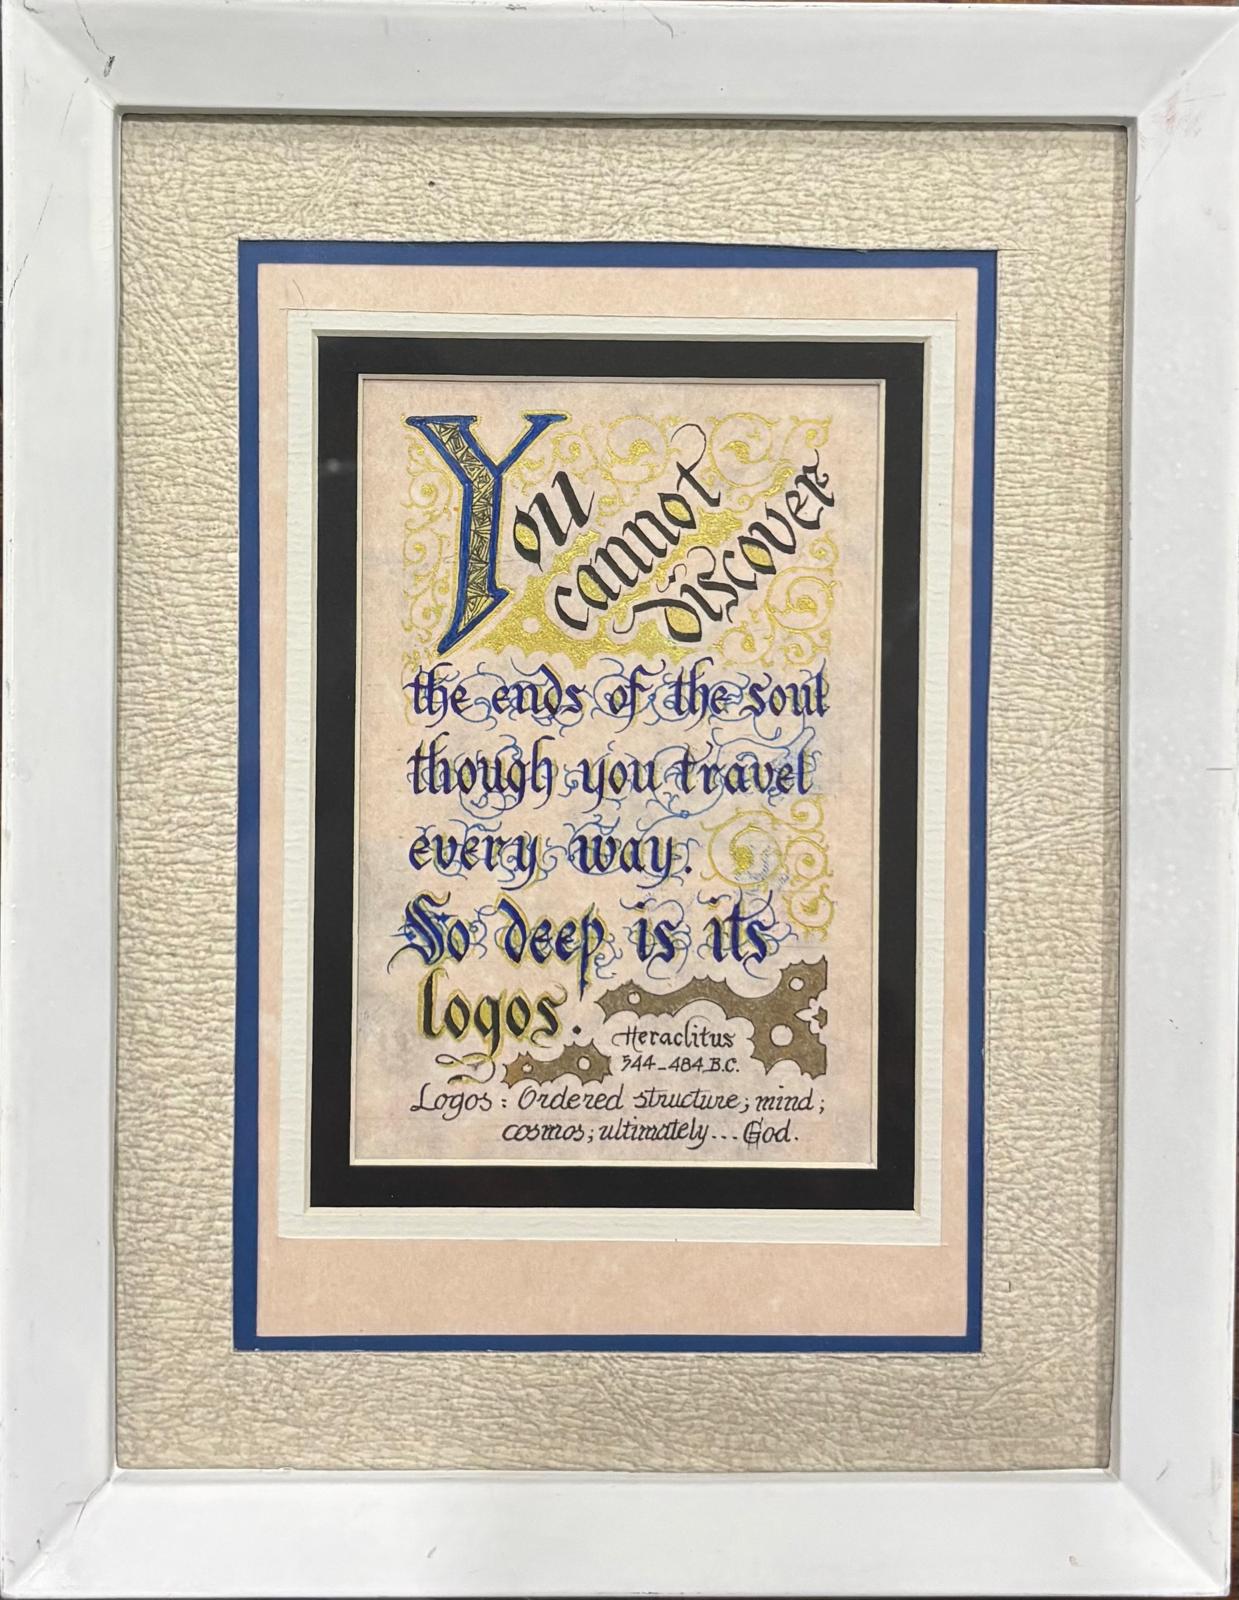 You
cannot
discover
the ends of the soul
though you travel
every way.
So deep is its
logos.
Heraclitus
544-484 B.C.
Logos: Ordered structure; mind;
cosmos; ultimately... God.